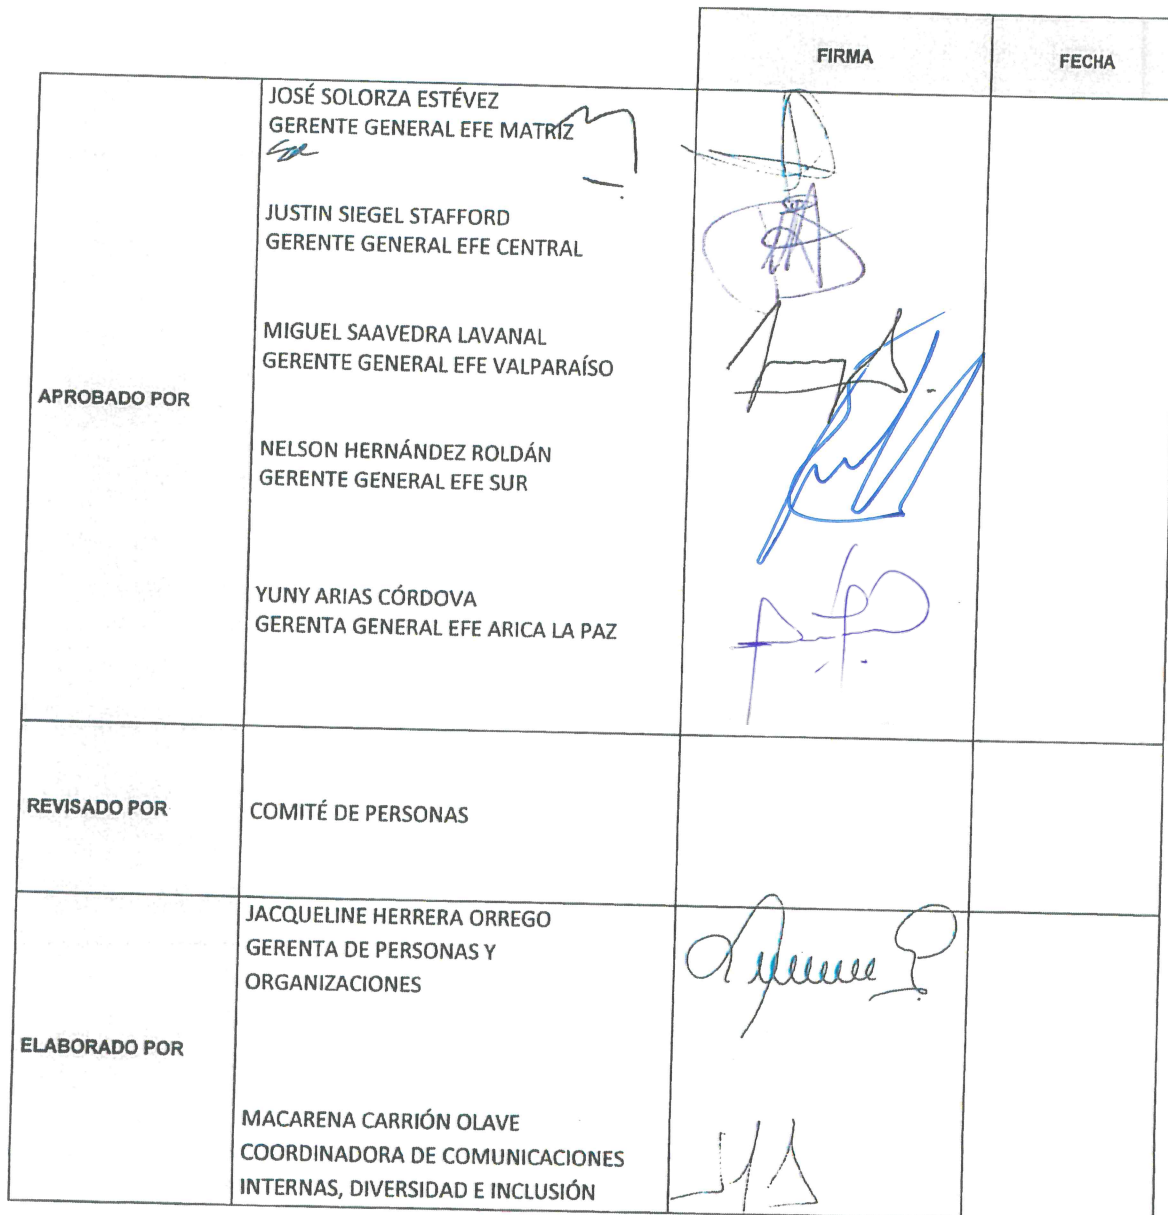 FIRMA
FECHA
APROBADO POR
JOSÉ SOLORZA ESTÉVEZ
GERENTE GENERAL EFE MATRIZ
JUSTIN SIEGEL STAFFORD
GERENTE GENERAL EFE CENTRAL
MIGUEL SAAVEDRA LAVANAL
GERENTE GENERAL EFE VALPARAÍSO
NELSON HERNÁNDEZ ROLDÁN
GERENTE GENERAL EFE SUR
YUNY ARIAS CÓRDOVA
GERENTA GENERAL EFE ARICA LA PAZ
REVISADO POR
COMITÉ DE PERSONAS
ELABORADO POR
JACQUELINE HERRERA ORREGO
GERENTA DE PERSONAS Y
ORGANIZACIONES
MACARENA CARRIÓN OLAVE
COORDINADORA DE COMUNICACIONES
INTERNAS, DIVERSIDAD E INCLUSIÓN